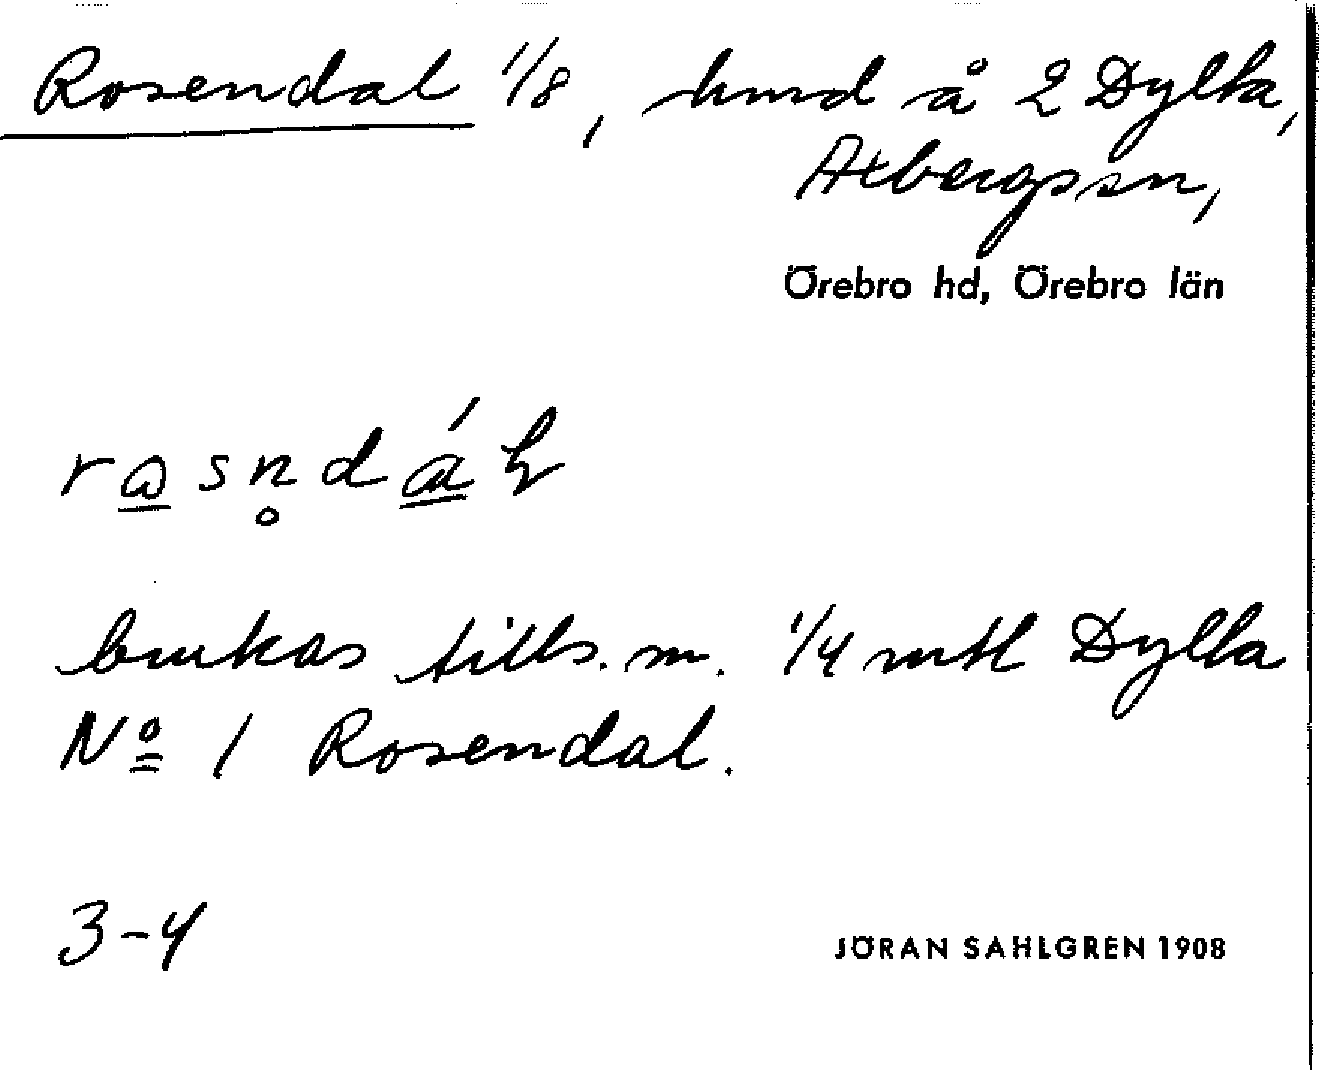 Rosendal 1/8, hmd å 2 Dylta,
Axbergs sn,
Örebro hd, Örebro län
rɷsn̥dál
brukas tills. m. 1/4 mtl Dylta
Nº 1 Rosendal.
3-4
JÖRAN SAHLGREN 1908